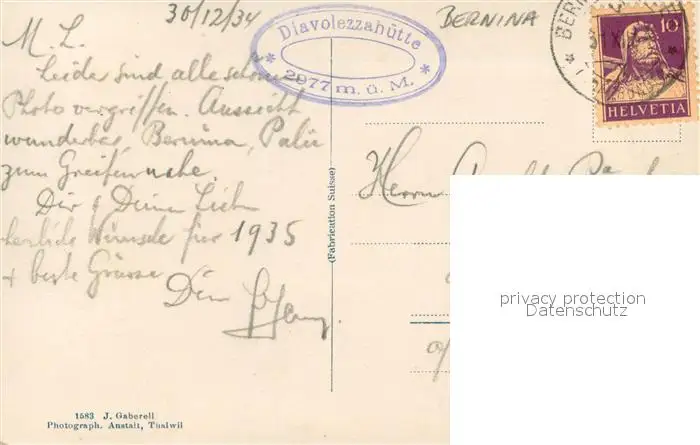 30/12/34
BERNINA
Diavolezzahütte
* 2977 m. ü. M. *
BERN
10
HELVETIA
M. L.
Leider sind alle schönen
Photo vergriffen. Aussicht
wunderbar, Bernina, Palü
zum Greifen nahe.
Dir & Deinen Lieben
herzliche Wünsche für 1935
+ beste Grüsse
Dein
Herrn
(Fabrication Suisse)
privacy protection
Datenschutz
1583 J. Gaberell
Photograph. Anstalt, Thalwil